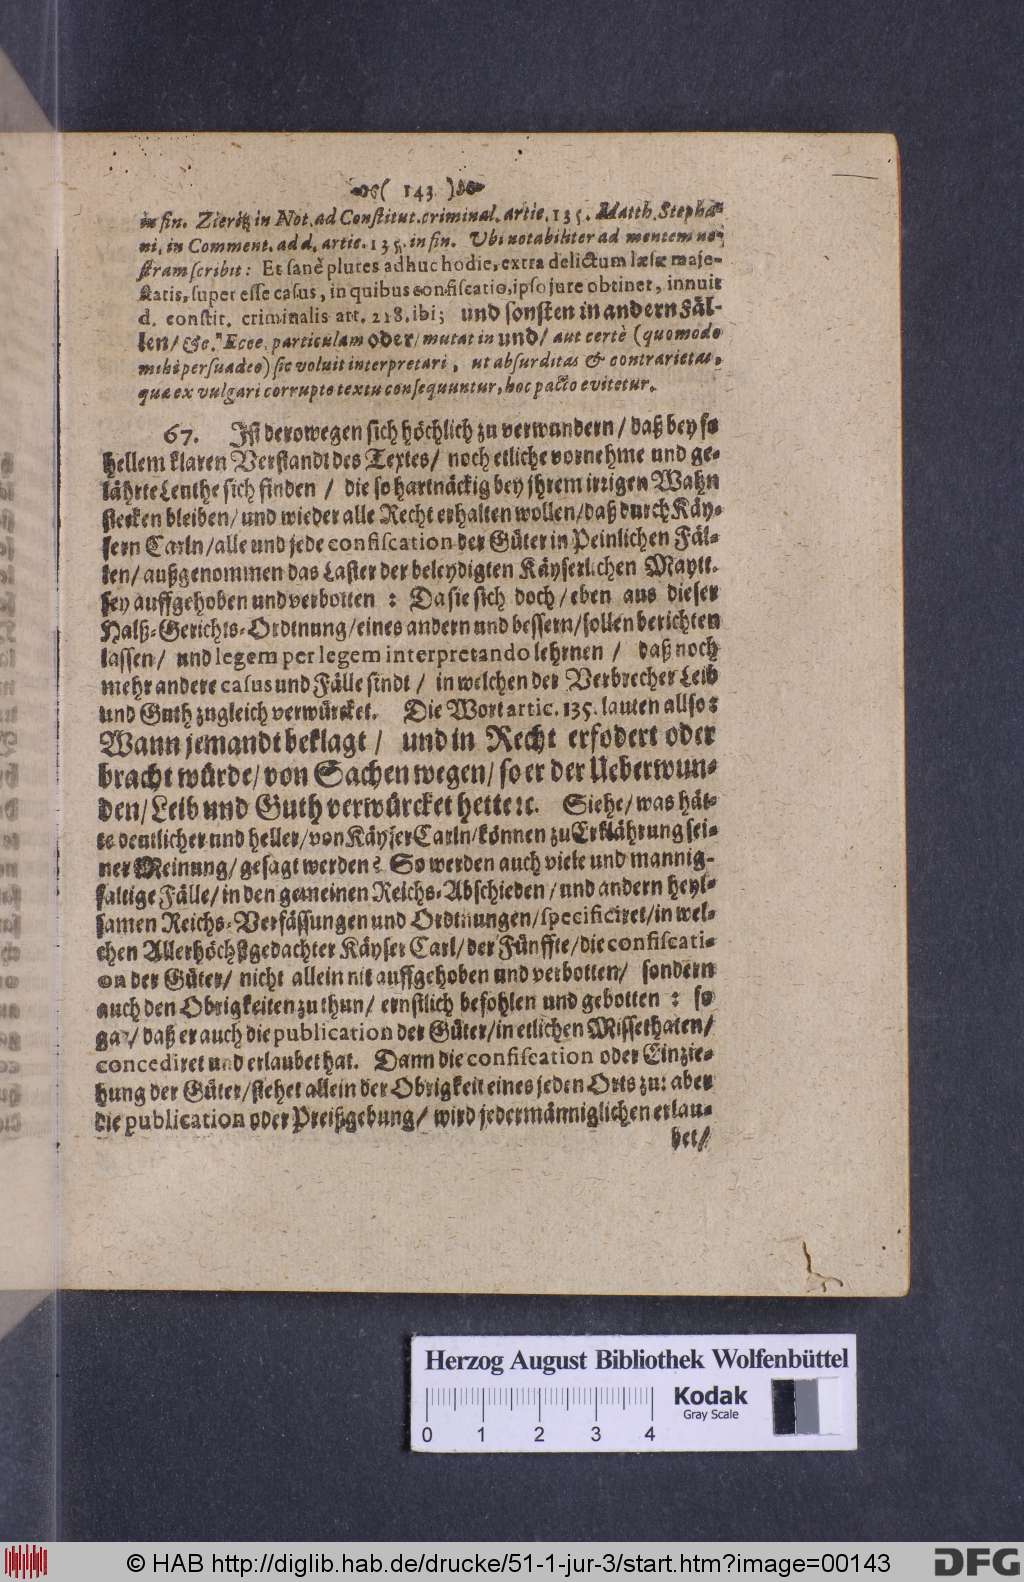 ( 143 )
in fin. Zieritz in Not. ad Constitut. criminal. artic. 135. Matth. Stepha-
ni, in Comment. ad d. artic. 135. in fin. Ubi notabiliter ad mentem no-
stram scribit: Et sanè plures adhuc hodie, extra delictum læsæ maje-
statis, super esse casus, in quibus confiscatio, ipso jure obtinet, innuit
d. constit. criminalis art. 218. ibi; und sonsten in andern Fäl-
len/ &c. Ecce particulam oder/ mutat in und/ aut certè (quomodo
mihi persuadeo) sic voluit interpretari, ut absurditas & contrarietas,
quæ ex vulgari corrupto textu consequuntur, hoc pacto evitetur.
67. Ist derowegen sich höchlich zu verwundern/ daß bey so
hellem klaren Verstandt des Textes/ noch etliche vornehme und ge-
lährte Leuthe sich finden / die so hartnäckig bey jhrem irrigen Wahn
stecken bleiben/ und wieder alle Recht erhalten wollen/ daß durch Käy-
sern Carln/ alle und jede confiscation der Güter in Peinlichen Fäl-
len/ außgenommen das Laster der beleydigten Käyserlichen Maytt.
sey auffgehoben und verbotten : Da sie sich doch/ eben aus dieser
Halß-Gerichts-Ordtnung/ eines andern und bessern/ sollen berichten
lassen/ und legem per legem interpretando lehrnen / daß noch
mehr andere casus und Fälle sindt / in welchen der Verbrecher Leib
und Guth zugleich verwürcket. Die Wort artic. 135. lauten allso:
Wann jemandt beklagt / und in Recht erfodert oder
bracht würde/ von Sachen wegen/ so er der Ueberwun-
den/ Leib und Guth verwürcket hette ꝛc. Siehe/ was hät-
te deutlicher und heller/ von Käyser Carln/ können zu Erklährung sei-
ner Meinung/ gesagt werden? So werden auch viele und mannig-
faltige Fälle/ in den gemeinen Reichs-Abschieden / und andern heyl-
samen Reichs-Verfassungen und Ordtnungen/ specificiret/ in wel-
chen Allerhöchstgedachter Käyser Carl/ der Fünffte/ die confiscati-
on der Güter/ nicht allein nit auffgehoben und verbotten/ sondern
auch den Obrigkeiten zu thun/ ernstlich befohlen und gebotten : so
gar/ daß er auch die publication der Güter/ in etlichen Missethaten/
concediret und erlaubet hat. Dann die confiscation oder Einzie-
hung der Güter/ stehet allein der Obrigkeit eines jeden Orts zu: aber
die publication oder Preißgebung/ wird jedermänniglichen erlau-
bet/
Herzog August Bibliothek Wolfenbüttel
Kodak
Gray Scale
0 1 2 3 4
© HAB http://diglib.hab.de/drucke/51-1-jur-3/start.htm?image=00143
DFG